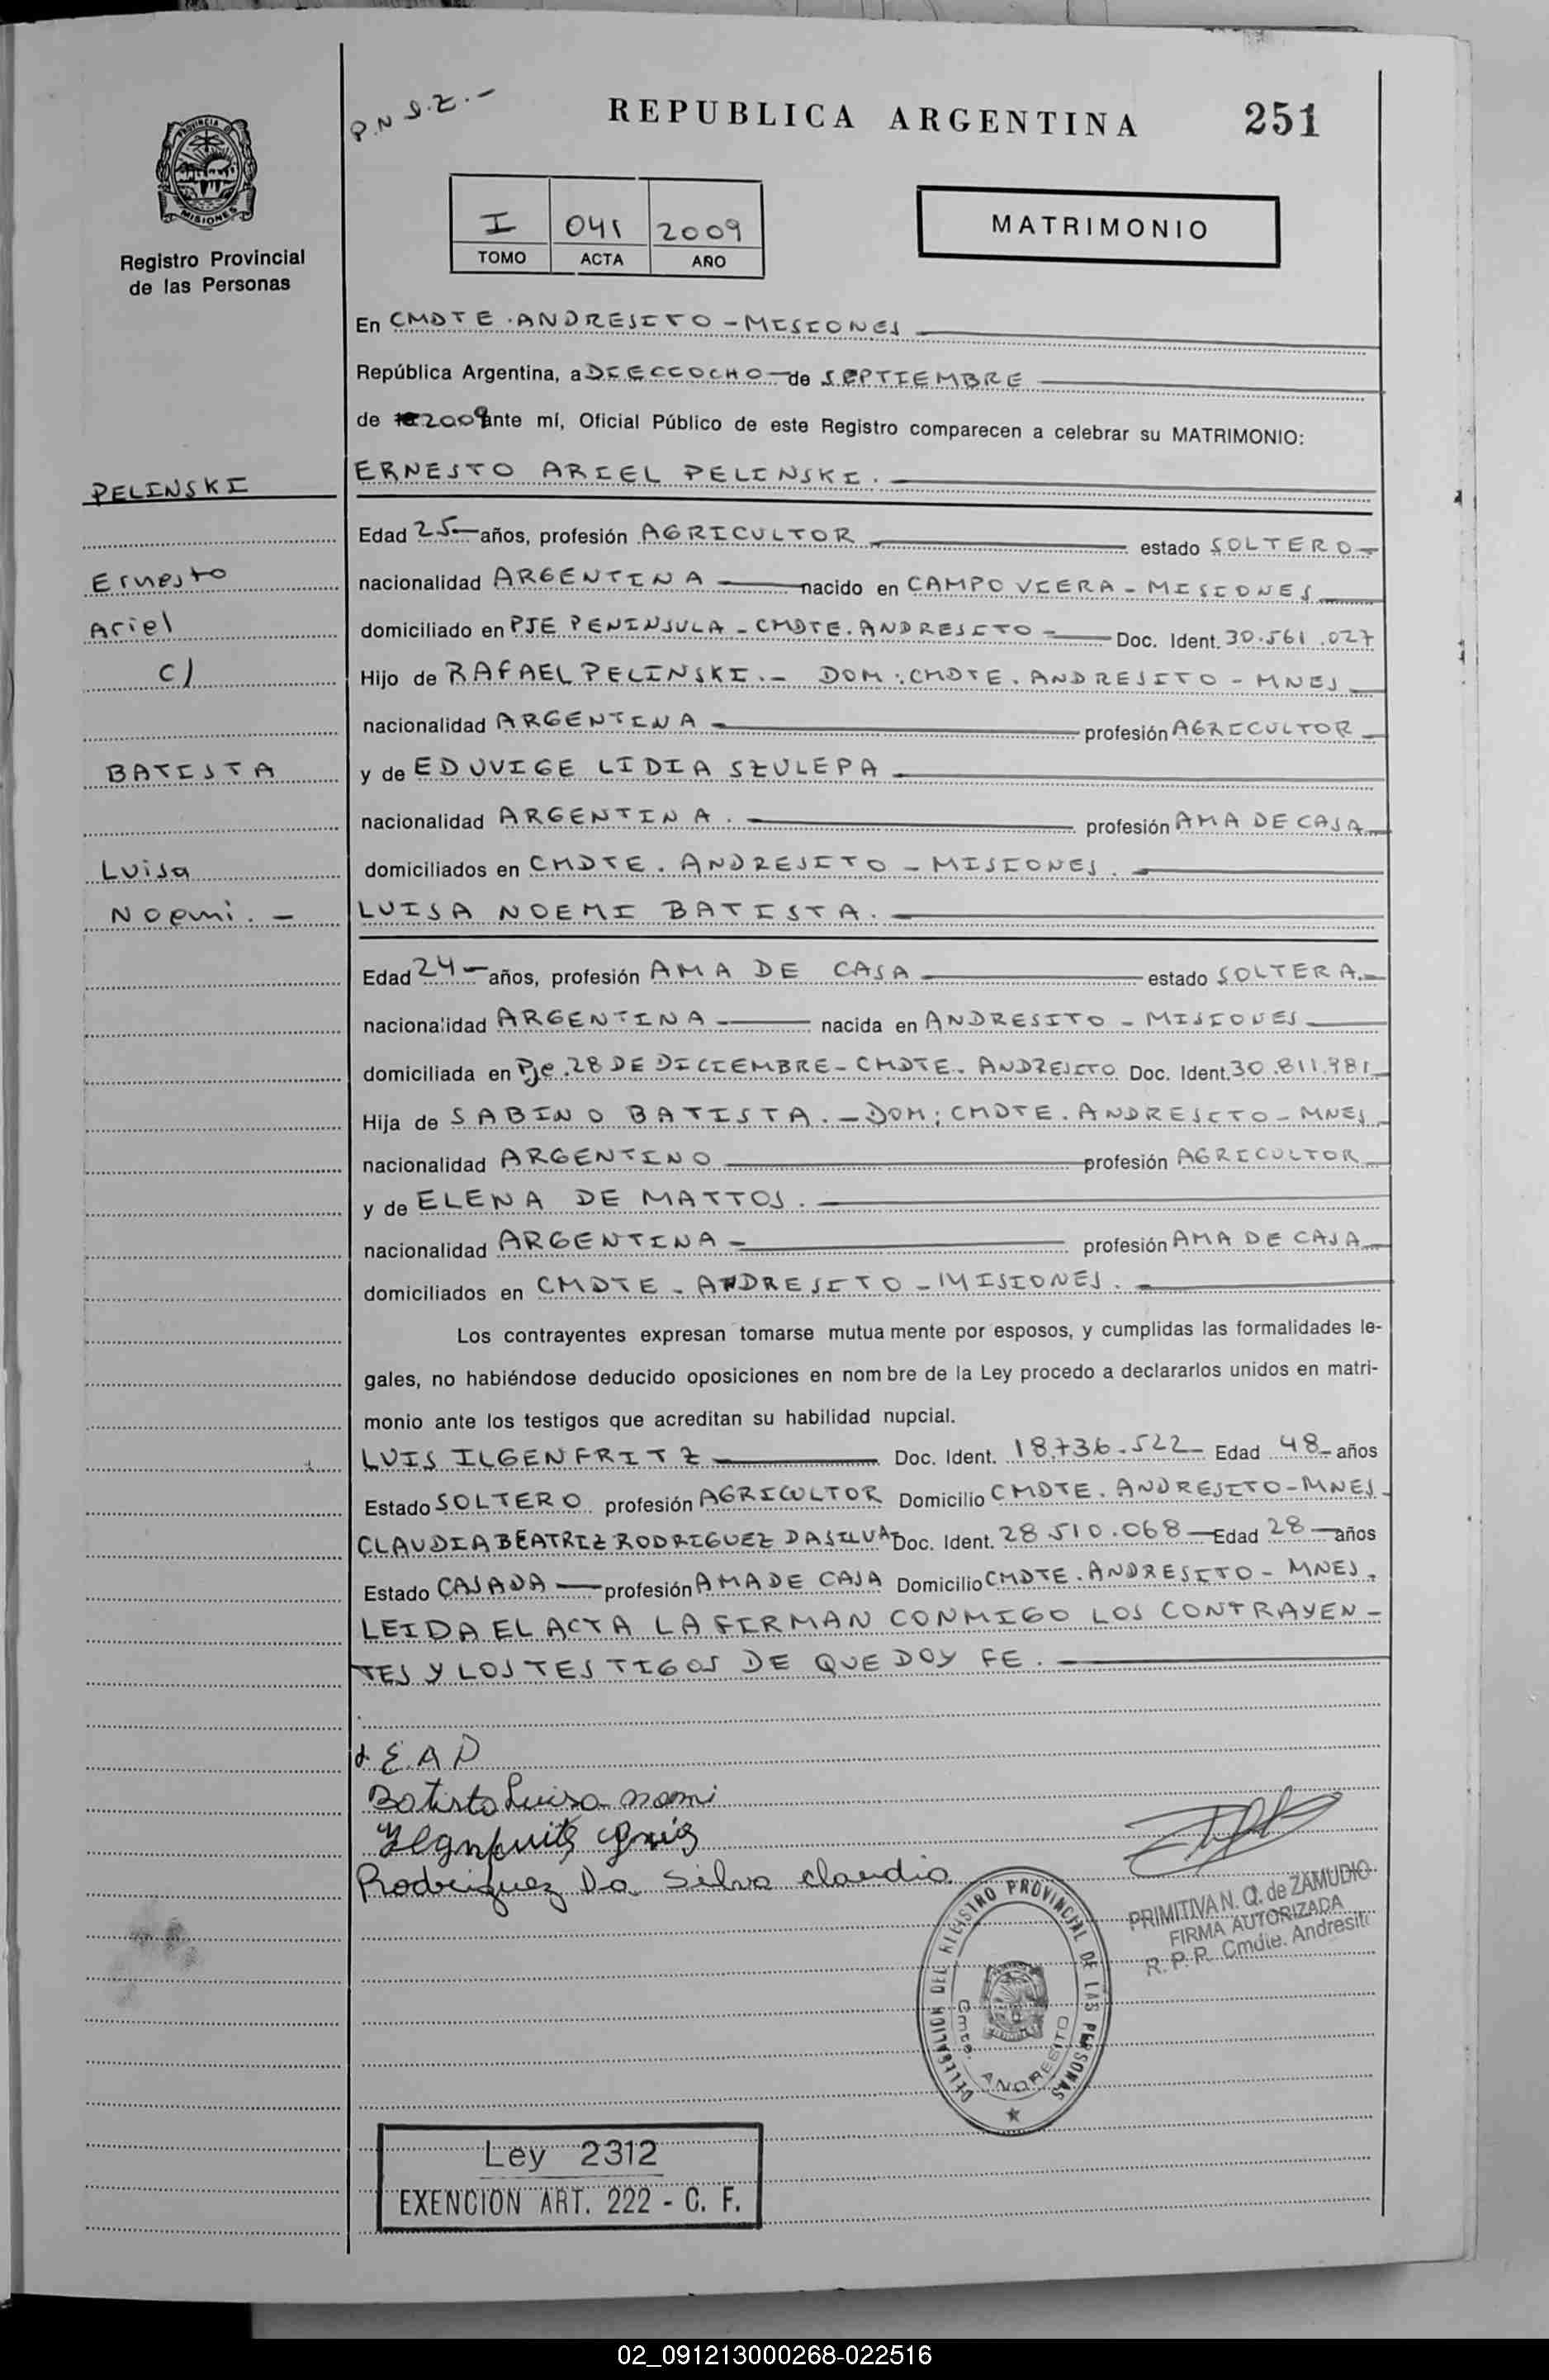 P.N S.Z.-
REPUBLICA ARGENTINA
251
PROVINCIA DE
MISIONES
Registro Provincial
de las Personas
I 041 2009
TOMO ACTA AÑO
MATRIMONIO
En CMDTE. ANDRESITO - MISIONES
República Argentina, a DIECIOCHO de SEPTIEMBRE
de 2009 ante mí, Oficial Público de este Registro comparecen a celebrar su MATRIMONIO:
PELINSKI
ERNESTO ARIEL PELINSKI.
Edad 25 años, profesión AGRICULTOR estado SOLTERO-
Ernesto
nacionalidad ARGENTINA nacido en CAMPO VIERA - MISIONES
Ariel
domiciliado en PJE PENINSULA - CMDTE. ANDRESITO - Doc. Ident. 30.561.027
c/
Hijo de RAFAEL PELINSKI.- DOM: CMDTE. ANDRESITO - MNES
nacionalidad ARGENTINA profesión AGRICULTOR
BATISTA
y de EDUVIGE LIDIA SZULEPA
nacionalidad ARGENTINA. profesión AMA DE CASA
Luisa
domiciliados en CMDTE. ANDRESITO - MISIONES.
Noemi. -
LUISA NOEMI BATISTA.
Edad 24 años, profesión AMA DE CASA estado SOLTERA.-
nacionalidad ARGENTINA nacida en ANDRESITO - MISIONES
domiciliada en Pje. 28 DE DICIEMBRE - CMDTE. ANDRESITO Doc. Ident. 30.811.981
Hija de SABINO BATISTA. - DOM: CMDTE. ANDRESITO - MNES
nacionalidad ARGENTINO profesión AGRICULTOR
y de ELENA DE MATTOS.
nacionalidad ARGENTINA - profesión AMA DE CASA
domiciliados en CMDTE - ANDRESITO - MISIONES.
Los contrayentes expresan tomarse mutua mente por esposos, y cumplidas las formalidades le-
gales, no habiéndose deducido oposiciones en nom bre de la Ley procedo a declararlos unidos en matri-
monio ante los testigos que acreditan su habilidad nupcial.
LUIS ILGENFRITZ Doc. Ident. 18.736.522 Edad 48 años
Estado SOLTERO profesión AGRICULTOR Domicilio CMDTE. ANDRESITO - MNES
CLAUDIA BEATRIZ RODRIGUEZ DASILVA Doc. Ident. 28 510.068 Edad 28 años
Estado CASADA profesión AMA DE CASA Domicilio CMDTE. ANDRESITO - MNES.
LEIDA EL ACTA LA FIRMAN CONMIGO LOS CONTRAYEN-
TES Y LOS TESTIGOS DE QUE DOY FE.
E.A P
Batista Luisa nomi
Rodriguez Da Silva claudia
PRIMITIVA N. Q. de ZAMUDIO
FIRMA AUTORIZADA
R. P. P. Cmdte. Andresito
DELEGACION DEL REGISTRO PROVINCIAL DE LAS PERSONAS
Cmte. ANDRESITO
Ley 2312
EXENCION ART. 222 - C. F.
02_091213000268-022516